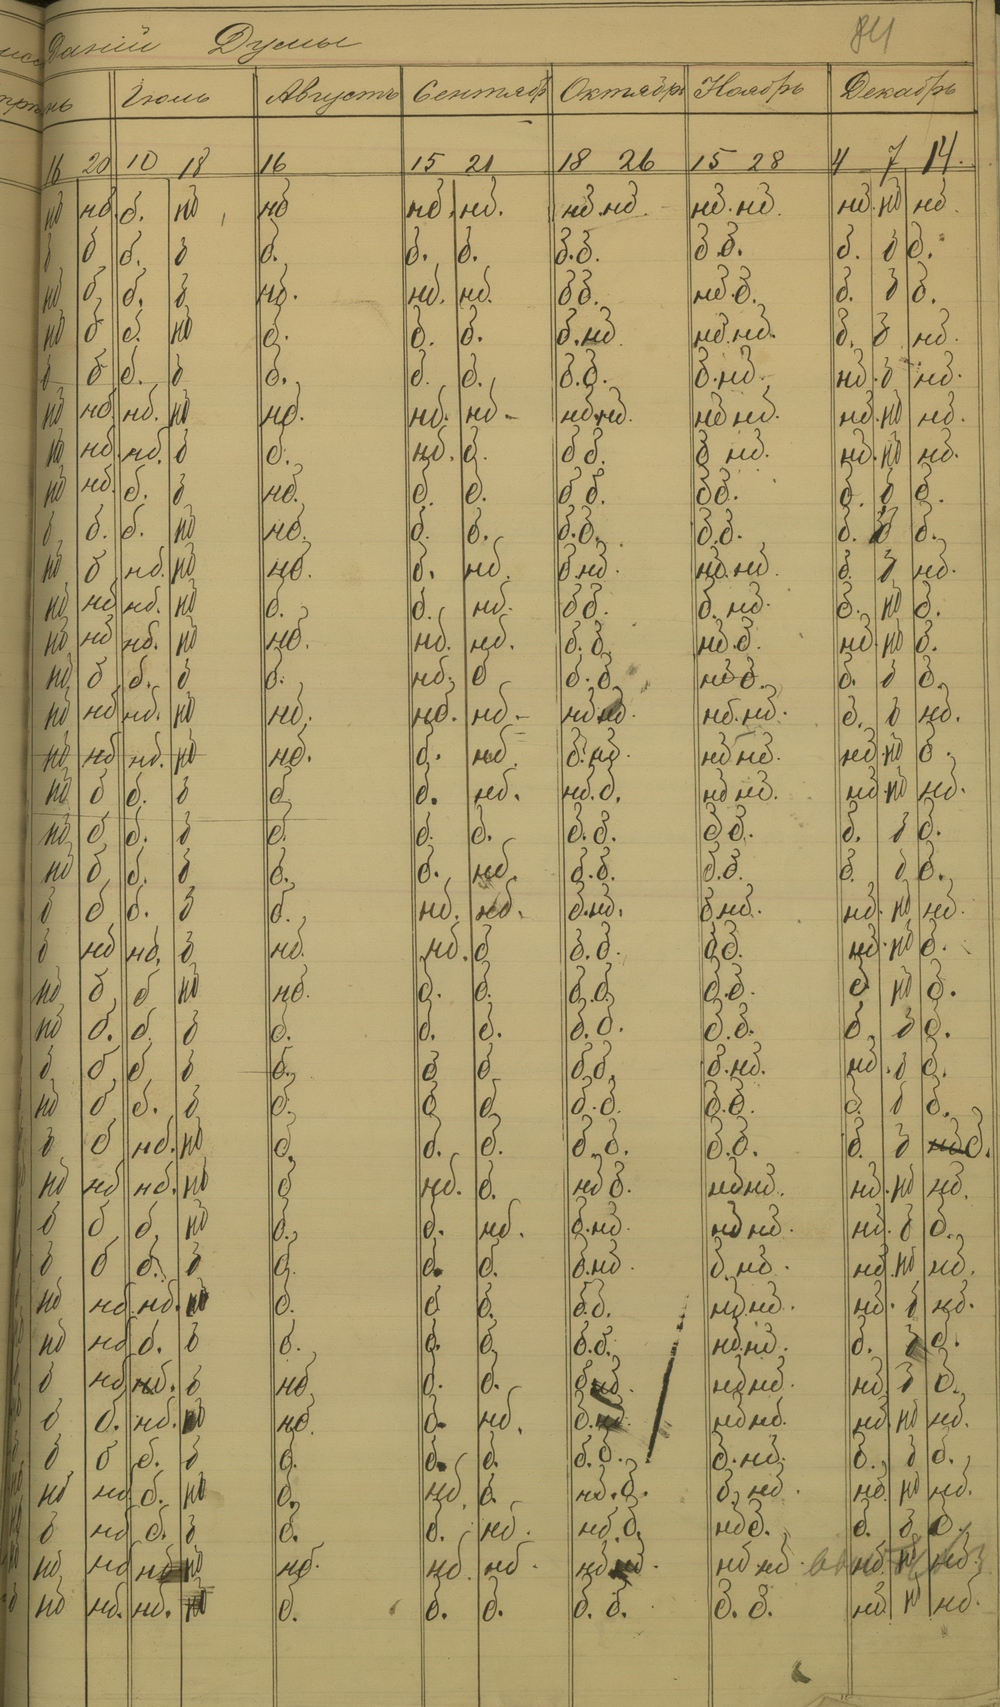 даній Думы 84
нь Іюль Августъ Сентябрь Октябрь Ноябрь Декабрь
16 20 10 18 16 15 21 18 26 15 28 4 7 14.
нб нб. б. нб нб нб. нб. нб. нб. нб. нб. нб. нб нб.
б б б. б б. б. б. б. б. б б. б. б б.
нб б б. б нб. нб. нб. б б. нб б. б. б б.
нб б б. нб б. б. б. б. нб нб. нб. б. б нб.
б б б. б б. б. б. б. б. б. нб. нб. б нб.
нб нб. нб. нб нб. нб. нб. нб. нб. нб нб. нб. нб нб.
нб нб. нб. б б. нб. б. б б. б нб. нб. нб нб.
нб нб. б. б нб. б. б. б б. б б. б. б б.
б б. б. нб нб. б. б. б. б. б. б. б. б б.
нб б нб. нб нб. б. нб. б нб. нб. нб. б. б нб.
нб нб нб. нб б. б. нб. б б. б. нб. б. нб б.
нб нб нб. нб нб. нб. нб. б. б. нб. б. нб. нб б.
нб б б. б б. нб. б б. б. нб б. б. б б.
нб нб нб. нб нб. нб. нб. нб нб. нб. нб. б. б нб.
нб нб нб. нб нб. б. нб б. нб. нб нб. нб. нб б.
нб б б. б б б. нб. нб. б. нб нб. нб. нб нб.
нб б б. б б. б. б. б. б. б б. б. б б.
нб б б. б б. б. нб. б. б. б. б. б. б б.
б б б. б б. нб. нб. б. нб. б нб. нб. нб нб.
б нб нб. б нб. нб. б б. б. б б. нб. нб б.
нб б б нб нб. б. б. б. б. б. б. б нб б.
нб б. б. б б. б. б. б. б. б. б. б. б б.
б б б б б. б б б б. б. нб. нб. б б.
нб б б. б б. б б б. б. б. б. б. б б.
б б нб. нб б. б. б. б. б. б. б. б. б б.
нб нб нб. нб б нб. б. нб б. нб нб. нб. нб нб.
б б б. нб б. б. нб. б. нб. нб нб. нб. б б.
б б б. б б. б. б. б. нб. б. нб. нб. нб нб.
нб нб. нб. нб б. б б. б б. нб нб. нб. б нб.
нб нб б. б б. б. б б. б. нб нб. б. б б.
б нб нб. б нб б. б. б нб. нб нб. нб. б б.
б б. нб. нб нб. б. нб. б. нб. нб нб. нб. нб нб.
б б б. б б. б. б. б. б. б. нб. б. б б.
нб нб б. нб б. нб. б. нб. б. б. нб. нб. нб нб.
б нб б. б б. б. нб. нб. б. нб б. б. б б.
нб нб нб нб нб. нб. нб. нб нб. нб нб. нб. нб нб.
нб нб. нб. нб б. б. б. б. б. б. б. нб. нб нб.